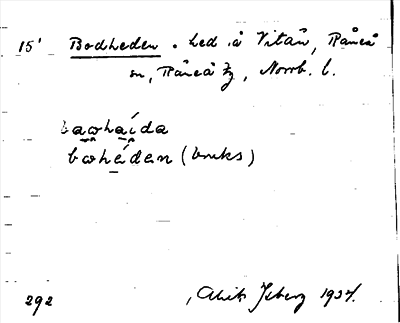 15' Bodheden . hed å Vitån, Råneå
sn, Råneå tg, Norrb. l.
bawhaída
bωhéden (bruks)
292 Isberg 1937.